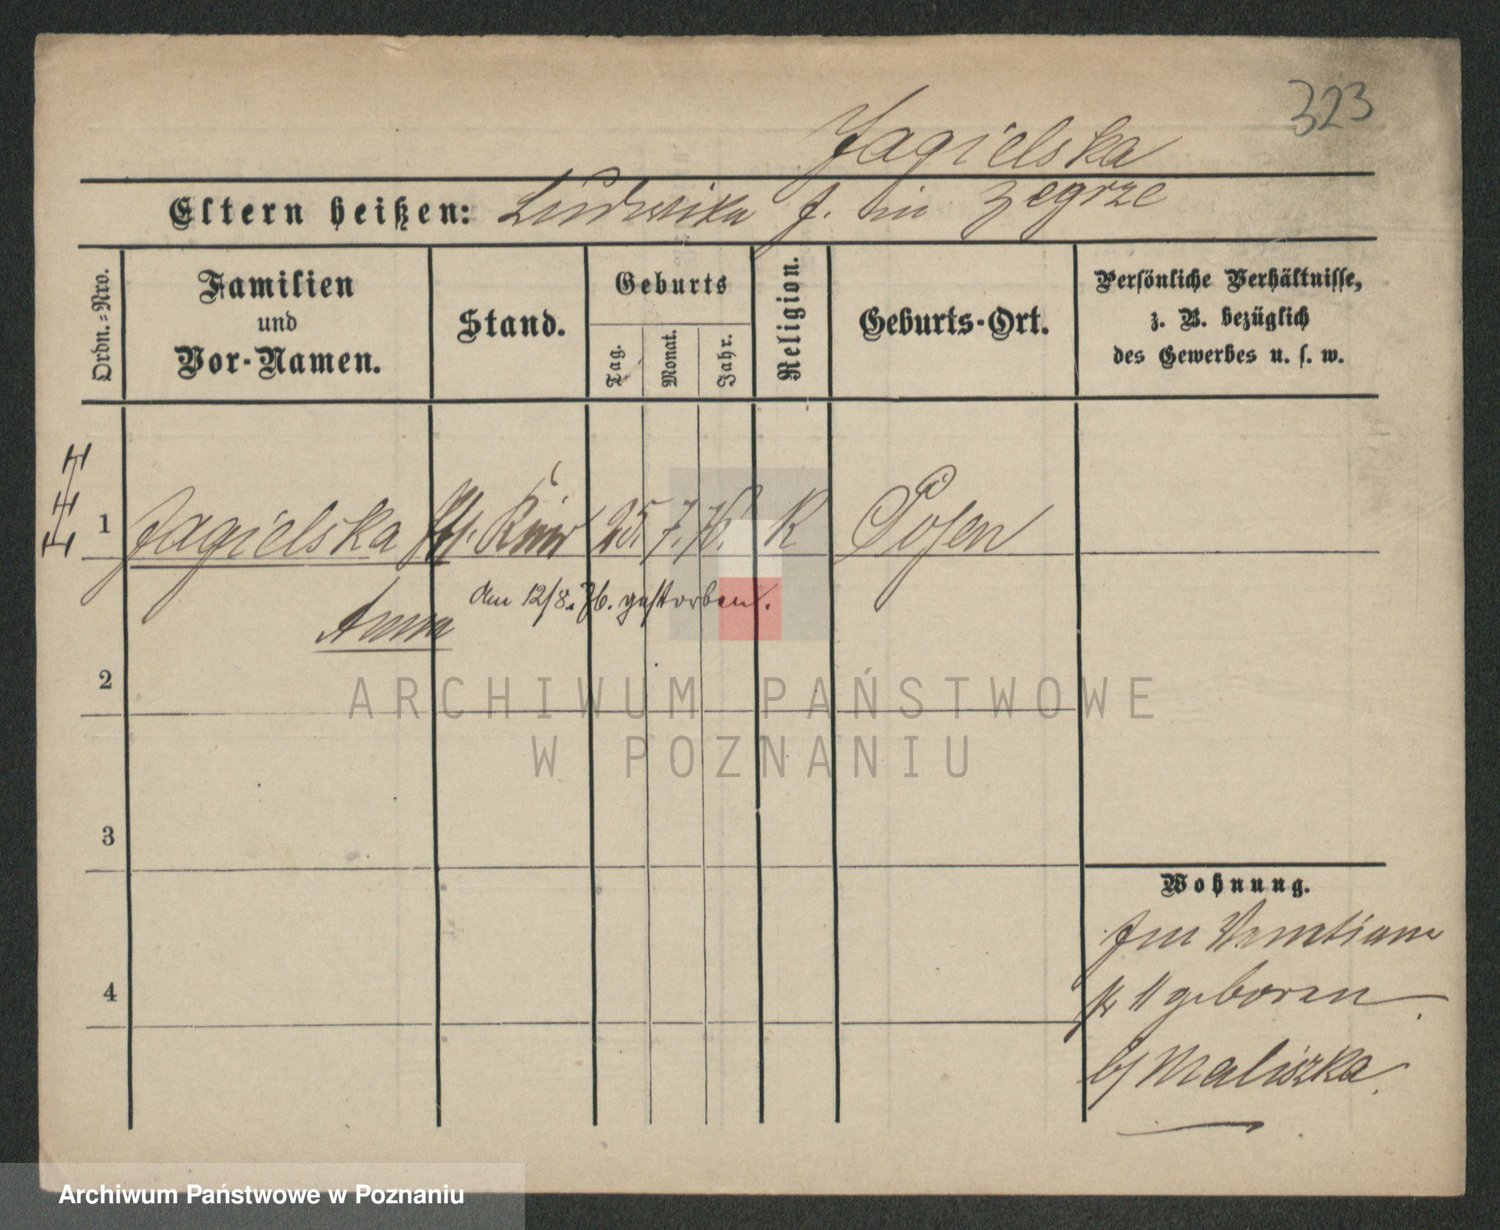 323
Jagielska
Eltern heißen: Ludwika J. in Zegrze
Ordn.=Nro.
Familien
und
Vor-Namen.
Stand.
Geburts
Tag.
Monat.
Jahr.
Religion.
Geburts-Ort.
Persönliche Verhältnisse,
z. B. bezüglich
des Gewerbes u. s. w.
1 Jagielska 25. 7. K Posen
Anna
den 12/8. 76. gestorben.
2
ARCHIWUM PAŃSTWOWE
W POZNANIU
3
4
Wohnung.
geboren
b/ Maliszka.
Archiwum Państwowe w Poznaniu